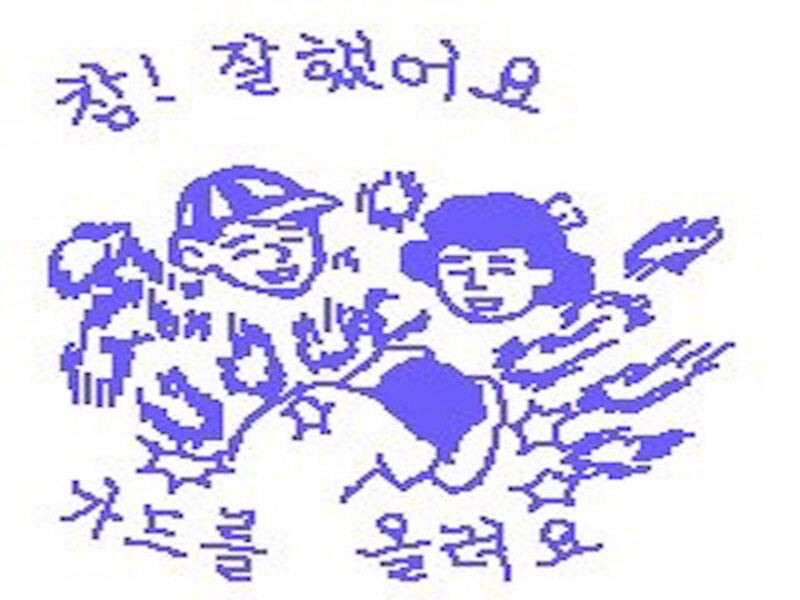 참! 잘했어요
가드를 올려요